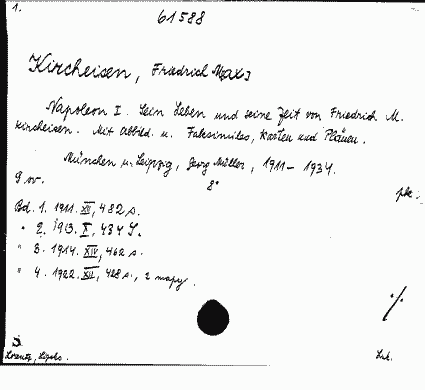 1.
61588
Kircheisen, Friedrich M[ax]
Napoleon I. Sein Leben und seine Zeit von Friedrich M.
Kircheisen. Mit Abbild. u. Faksimiles, Karten und Plänen.
München u. Leipzig, Georg Müller, 1911-1934.
9 vv. 8°
Bd. 1. 1911. XII, 482 s.
" 2. 1913. X, 434 S.
" 3. 1914. XIV, 462 s.
" 4. 1922. XII, 428 s., 2 mapy.
·/.